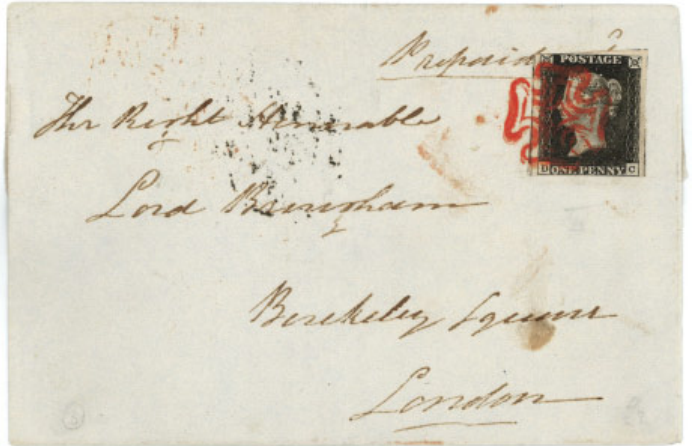 Prepaid
POSTAGE
D ONE PENNY C
The Right Honerable
Lord Brougham
Berkeley Square
London